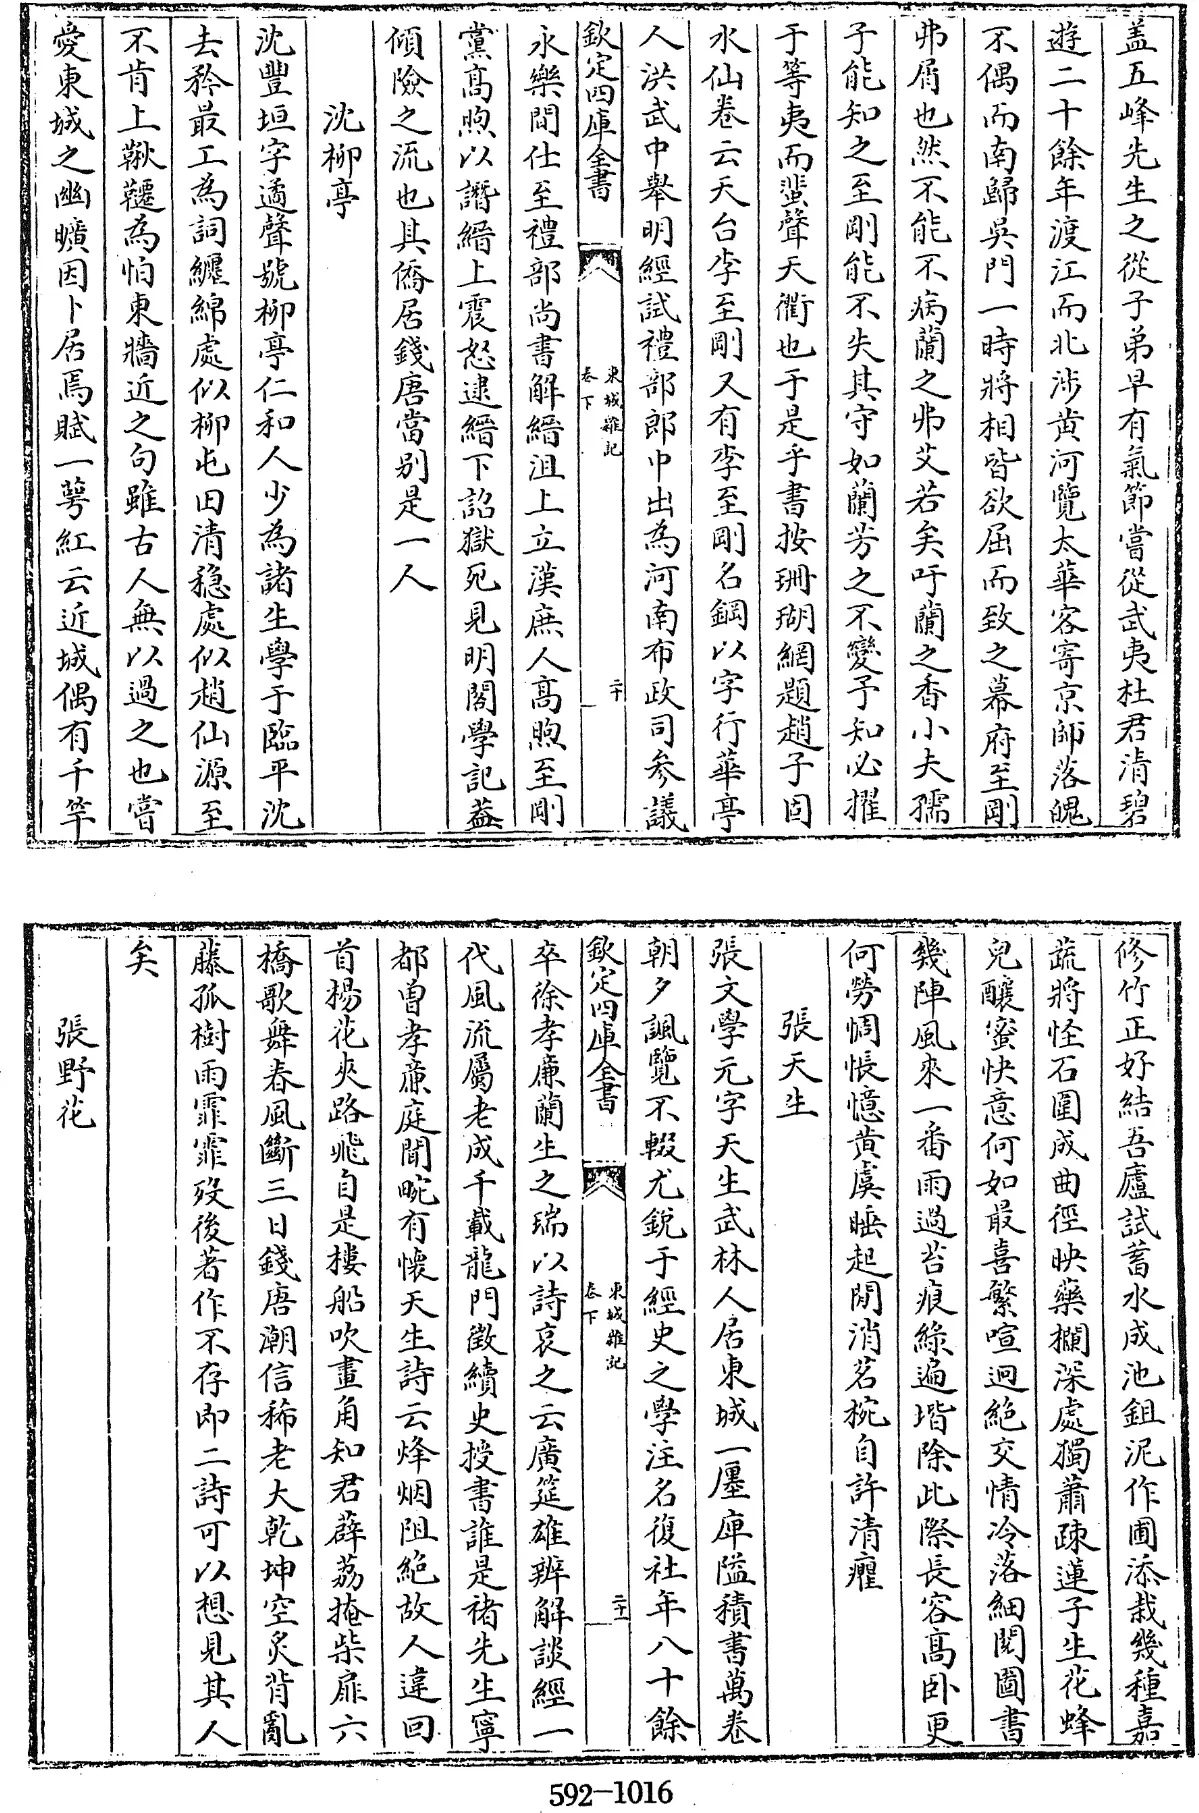 盖五峰先生之從子弟早有氣節嘗從武夷杜君清碧
遊二十餘年渡江而北涉黄河覽太華客寄京師落魄
不偶而南歸吳門一時將相皆欲屈而致之幕府至剛
弗屑也然不能不病蘭之弗艾若矣吁蘭之香小夫孺
子能知之至剛能不失其守如蘭芳之不變予知必擢
于等夷而蜚聲天衢也于是乎書按珊瑚網題趙子固
水仙卷云天台李至剛又有李至剛名鋼以字行華亭
人洪武中舉明經試禮部郎中出為河南布政司參議
欽定四庫全書
東城雜記
卷下
二十
永樂間仕至禮部尚書解縉沮上立漢庶人高煦至剛
黨高煦以譖縉上震怒逮縉下詔獄死見明閣學記葢
傾險之流也其僑居錢唐當别是一人
沈柳亭
沈豐垣字遹聲號柳亭仁和人少為諸生學于臨平沈
去矜最工為詞纒綿處似柳屯田清穏處似趙仙源至
不肯上鞦韆為怕東牆近之句雖古人無以過之也嘗
愛東城之幽曠因卜居焉賦一萼紅云近城偶有千竿
修竹正好結吾廬試蓄水成池鉏泥作圃添栽幾種嘉
蔬將怪石圍成曲徑映藥欄深處獨蕭疎蓮子生花蜂
兒釀蜜快意何如最喜繁喧迥絶交情冷落細閱圖書
幾陣風來一番雨過苔痕綠遍堦除此際長容高卧更
何勞惆悵憶黄虞睡起閒消茗椀自許清癯
張天生
張文學元字天生武林人居東城一廛庳隘積書萬卷
朝夕諷覽不輟尤銳于經史之學注名復社年八十餘
欽定四庫全書
東城雜記
卷下
二十一
卒徐孝廉蘭生之瑞以詩哀之云廣筵雄辨解談經一
代風流屬老成千載龍門徵續史授書誰是褚先生寧
都曽孝亷庭聞畹有懷天生詩云烽烟阻絶故人違回
首楊花夾路飛自是樓船吹畫角知君薜荔掩柴扉六
橋歌舞春風斷三日錢唐潮信稀老大乾坤空炙背亂
藤孤樹雨霏霏歿後著作不存即二詩可以想見其人
矣
張野花
592-1016